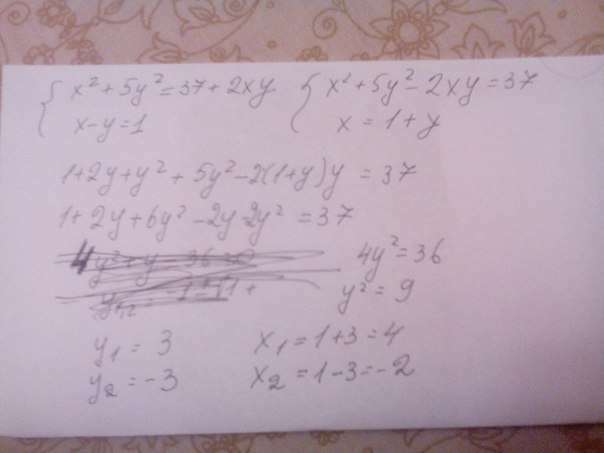 { x² + 5y² = 37 + 2xy { x² + 5y² - 2xy = 37
x - y = 1 x = 1 + y
1 + 2y + y² + 5y² - 2(1+y)y = 37
1 + 2y + 6y² - 2y - 2y² = 37
4y² = 36
y² = 9
y₁ = 3 x₁ = 1 + 3 = 4
y₂ = -3 x₂ = 1 - 3 = -2